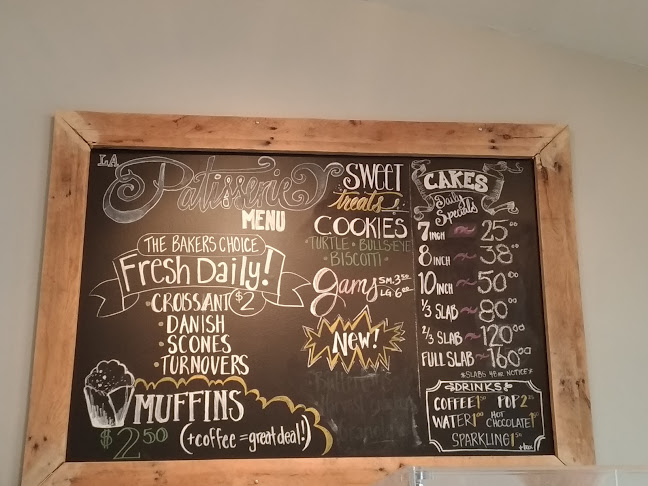 LA
Patisserie
MENU
THE BAKERS CHOICE
Fresh Daily!
·CROISSANT $2
·DANISH
·SCONES
·TURNOVERS
MUFFINS
$2.50
(+coffee = great deal!)
SWEET
treats
COOKIES
·TURTLE·BULLS-EYE
·BISCOTTI·
Jams SM. 3.50
LG 6.00
New!
CAKES
Daily
Specials
7 INCH ~ 25.00
8 INCH ~ 38.00
10 INCH ~ 50.00
1/3 SLAB ~ 80.00
2/3 SLAB ~ 120.00
FULL SLAB ~ 160.00
*SLABS 48HR NOTICE*
DRINKS
COFFEE 1.50 POP 2
WATER 1.00 HOT CHOCOLATE 1.50
SPARKLING 1.50
+tax